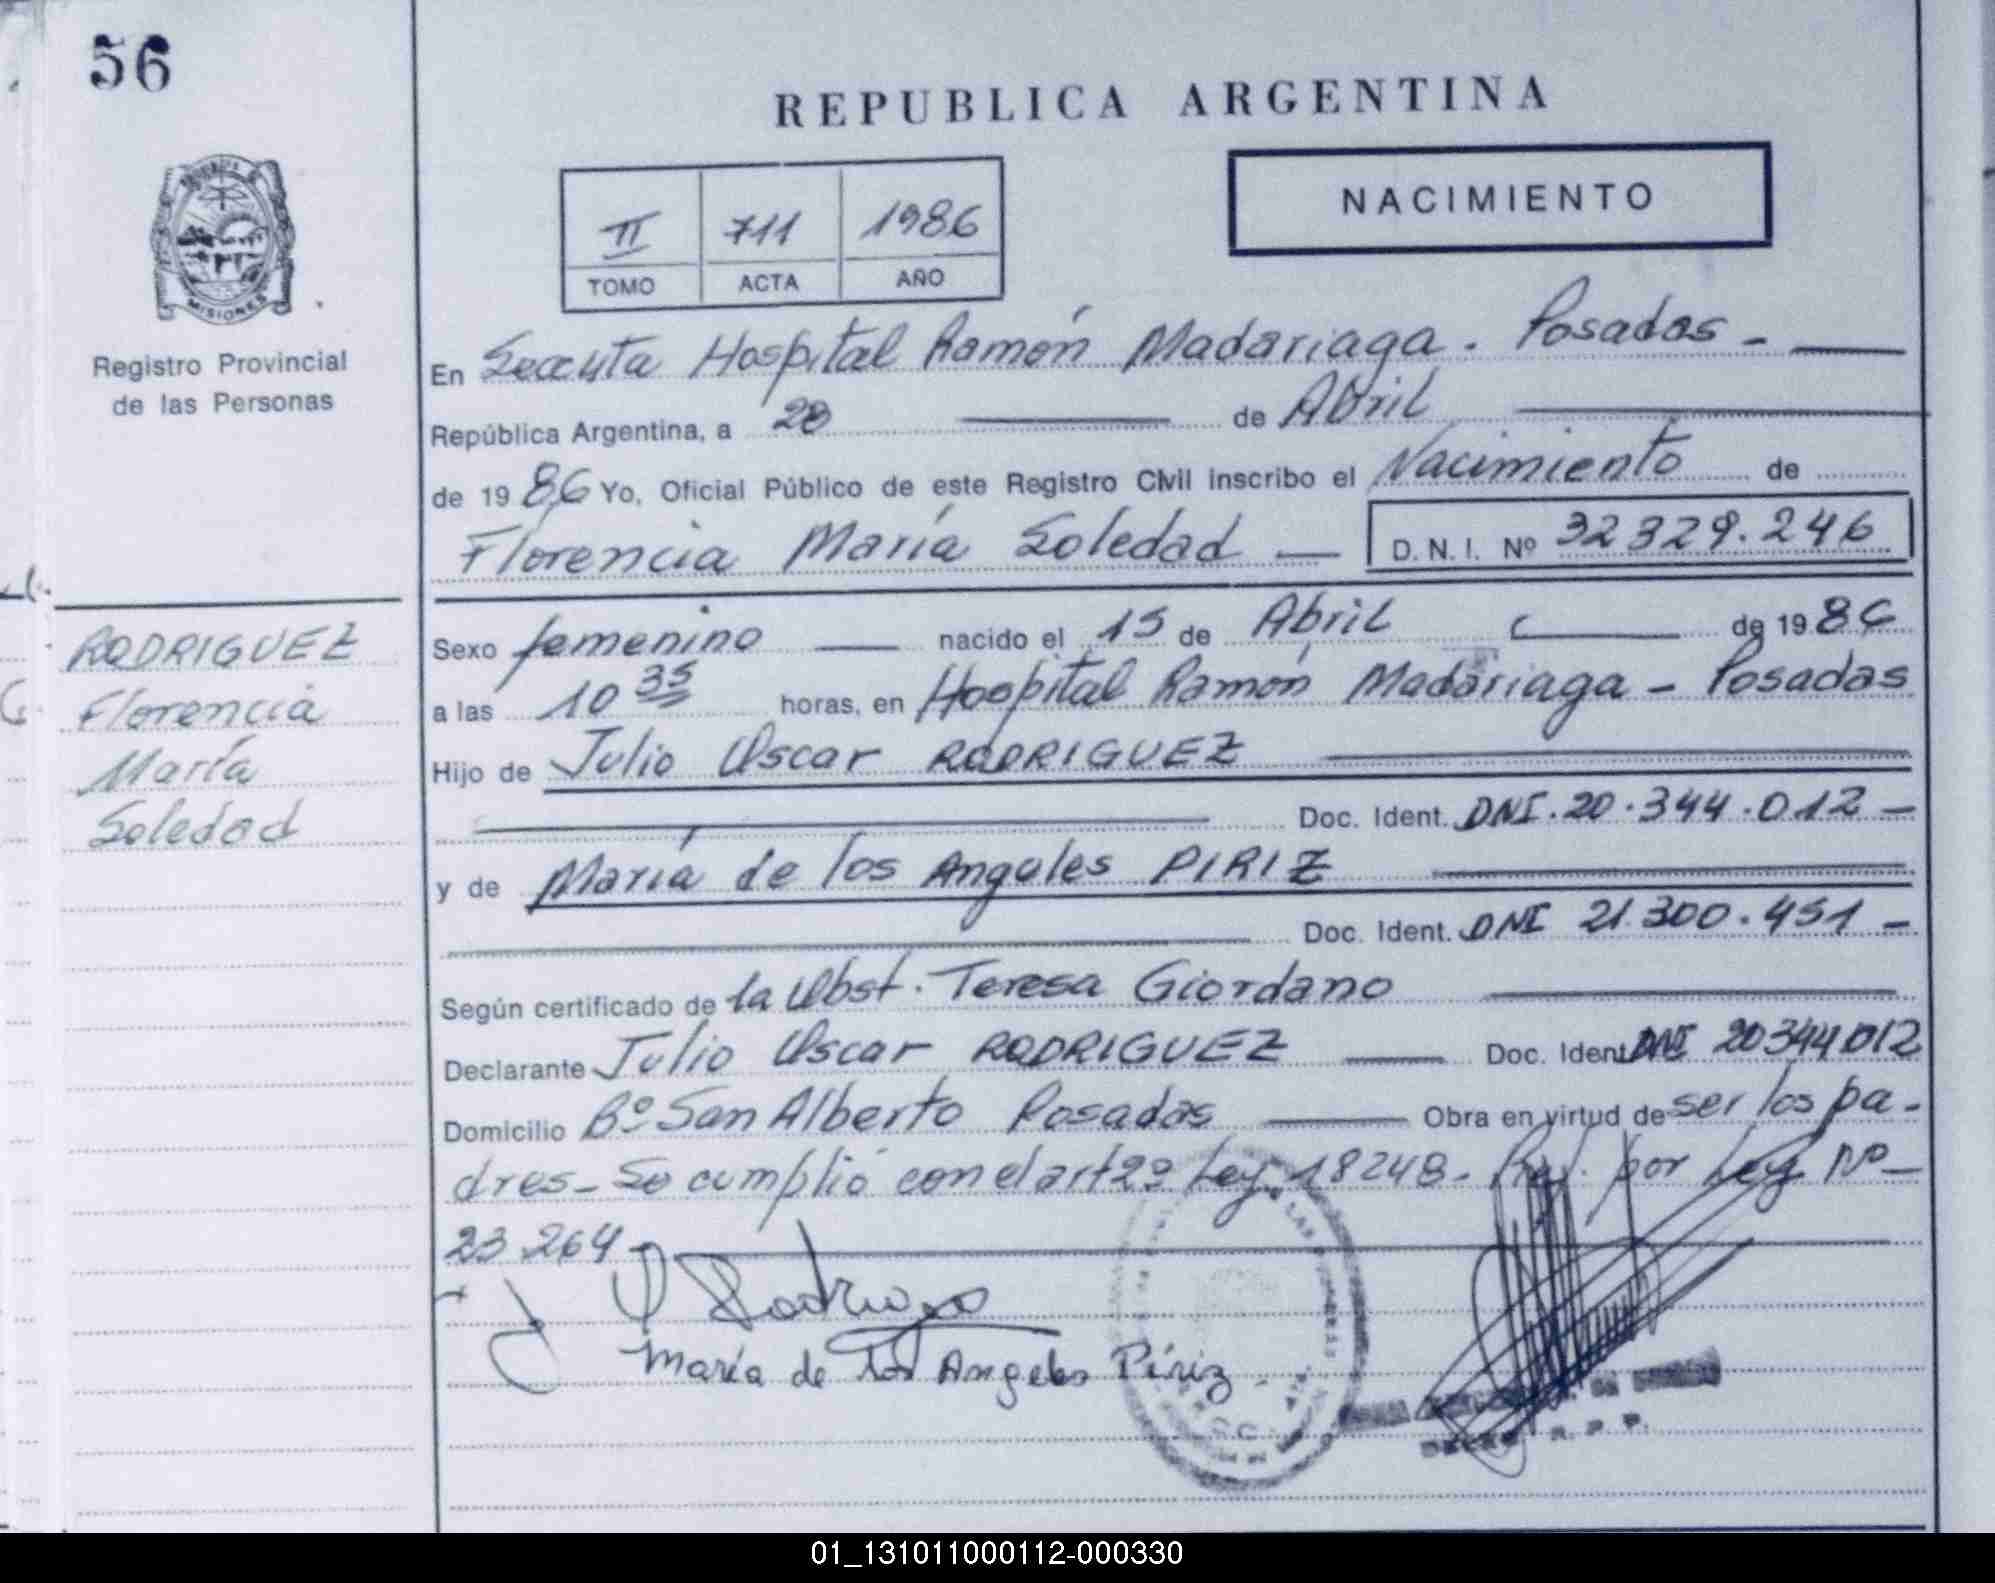 56
REPUBLICA ARGENTINA
NACIMIENTO
II 711 1986
TOMO ACTA AÑO
MISIONES
Registro Provincial
de las Personas
En Hospital Ramón Madariaga. Posadas -
República Argentina, a 28 de Abril
de 1986 Yo, Oficial Público de este Registro Civil inscribo el Nacimiento de
Florencia María Soledad D. N. I. Nº 32329.246
RODRIGUEZ
Florencia
María
Soledad
Sexo femenino nacido el 15 de Abril de 1986
a las 10 35 horas, en Hospital Ramón Madariaga - Posadas
Hijo de Julio Oscar RODRIGUEZ
Doc. Ident. DNI. 20.344.012 -
y de María de los Angeles PIRIZ
Doc. Ident. DNI 21.300.451 -
Según certificado de la Obst. Teresa Giordano
Declarante Julio Oscar RODRIGUEZ Doc. Ident. DNI 20344012
Domicilio Bº San Alberto Posadas Obra en virtud de ser los pa-
dres - Se cumplió con el art 2º Ley 18248 - por Ley Nº
23.264 -
María de Los Angeles Píriz
R. P. P.
01_131011000112-000330